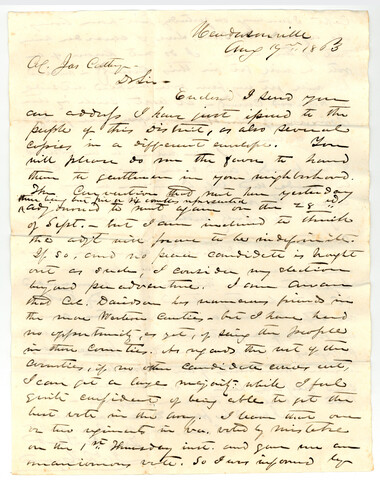 Hendersonville
Aug 19th 1863
Col. Jas Cathey -
Dr Sir -
Enclosed I send you
an address I have just issued to the
people of this District, as also several
copies in a different envelope. You
will please do me the favor to hand
them to gentlemen in your neighborhood.
The Convention that met here yesterday
there being but five or six counties represented
adjourned to meet again on the 28th
of Sept. - but I am inclined to think
the adjt will prove to be indefinite.
If so, and no peace candidate is brought
out as such, I consider my election
beyond peradventure. I am aware
that Col. Davidson has numerous friends in
the more Western Counties - but I have had
no opportunity, as yet, of seeing the people
in these Counties. As regards the rest of the
Counties, if no other candidate comes out,
I can get a large majority while I feel
quite confident of being able to get the
best vote in the army. I learn that one
or two regiments in Va. voted by mistake
on the 1st Thursday inst. and gave me an
unanimous vote. So I was informed by